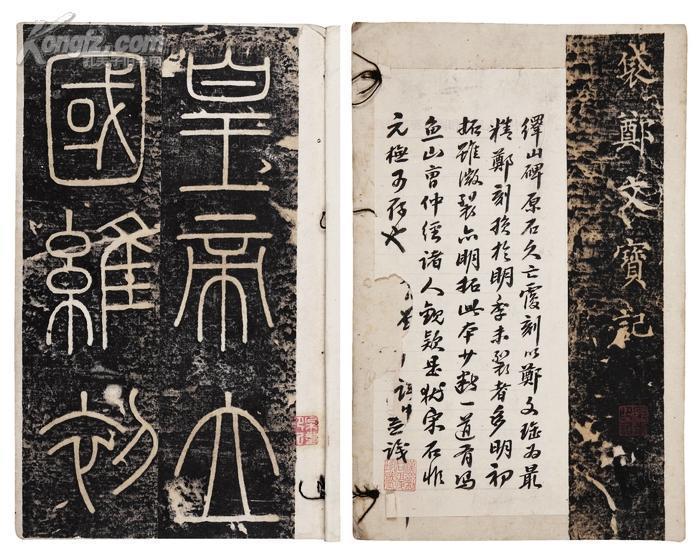 Kongfz.com
皇帝立
國維初
袋鄭文寶記
繹山碑原石久亡覆刻以鄭文為最
精鄭刻於明季未裂者多明初
拓雖微裂亦明拓此本少數一道有馮
魚山曾仲諸人觀款宋石
元可存也